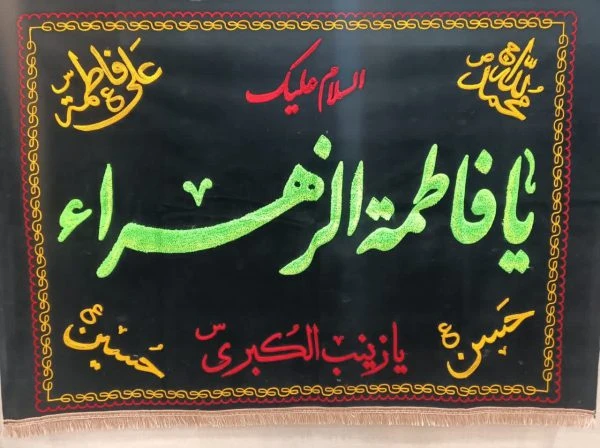 الله محمد ص
السلام علیک
علی ع فاطمة س
یا فاطمة الزهراء
حسن ع
یا زینب الکبری س
حسین ع